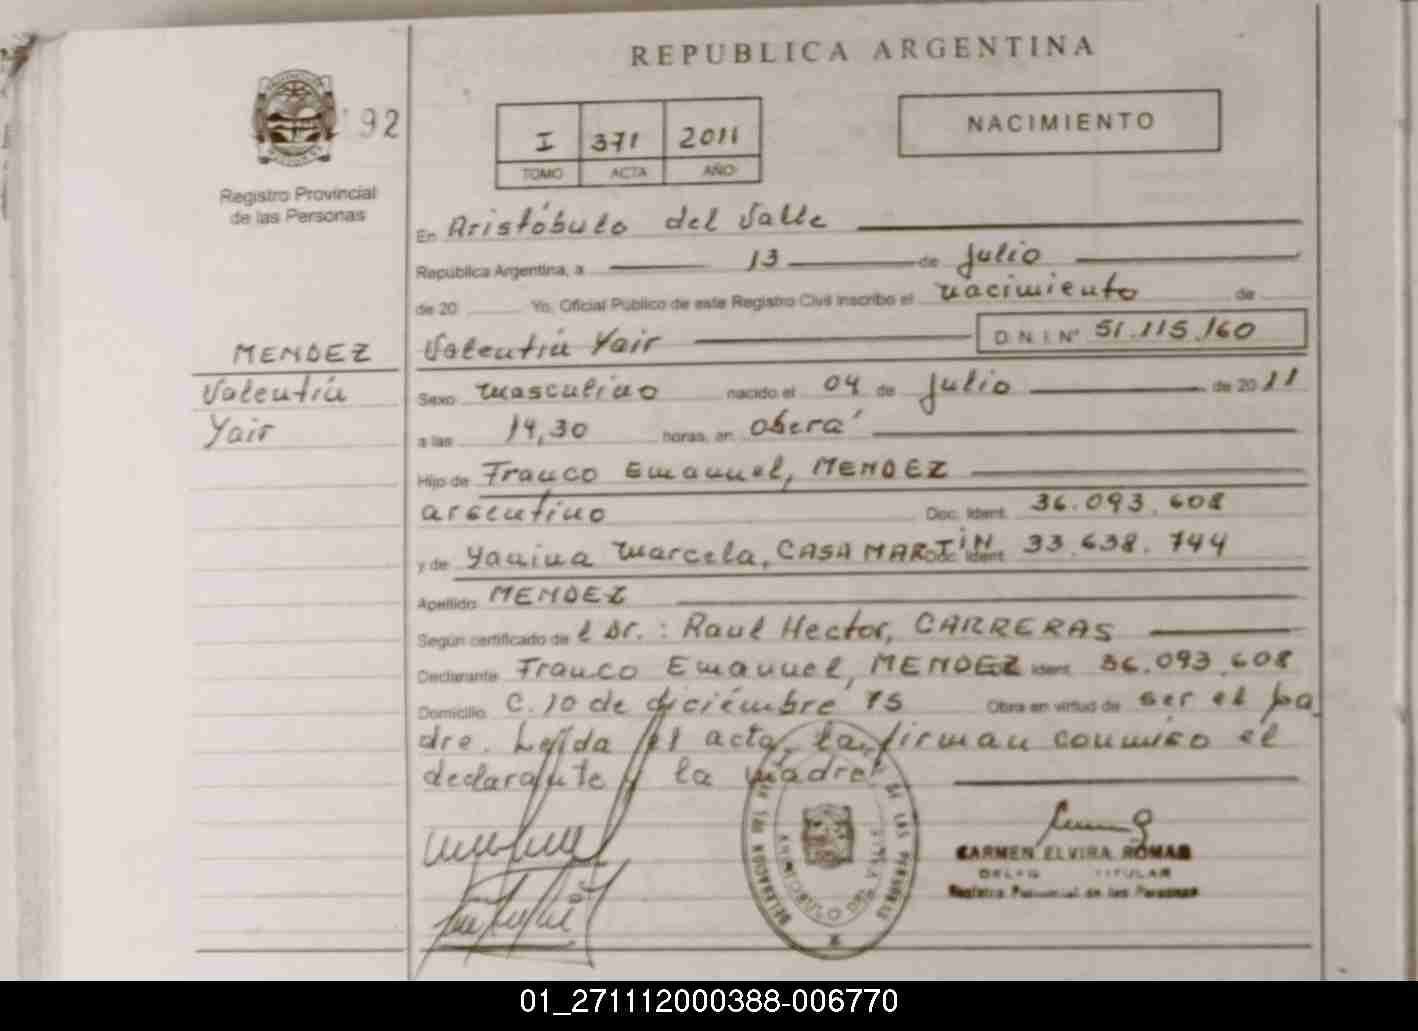 REPUBLICA ARGENTINA
192
I 371 2011
TOMO ACTA AÑO
NACIMIENTO
Registro Provincial
de las Personas
En Aristóbulo del Valle
República Argentina, a 13 de Julio
de 20 Yo, Oficial Público de este Registro Civil inscribo el nacimiento de
MENDEZ
Valentín
Yair
Valentín Yair D.N.I Nº 51.115.160
Sexo masculino nacido el 04 de Julio de 2011
a las 14,30 horas, en Oberá
Hijo de Franco Emanuel, MENDEZ
argentino Doc. Ident. 36.093.608
y de Yanina Marcela, CASAMARTIN Doc. Ident. 33.638.744
Apellido MENDEZ
Según certificado de l Dr.: Raul Hector, CARRERAS
Declarante Franco Emanuel, MENDEZ Ident. 36.093.608
Domicilio C. 10 de diciembre 75 Obra en virtud de ser el pa
dre. Leída el acta, la firman conmigo el
declarante y la madre
DE LAS PERSONAS
ARISTOBULO DEL VALLE
CARMEN ELVIRA ROMAN
TITULAR
Registro Provincial de las Personas
01_271112000388-006770